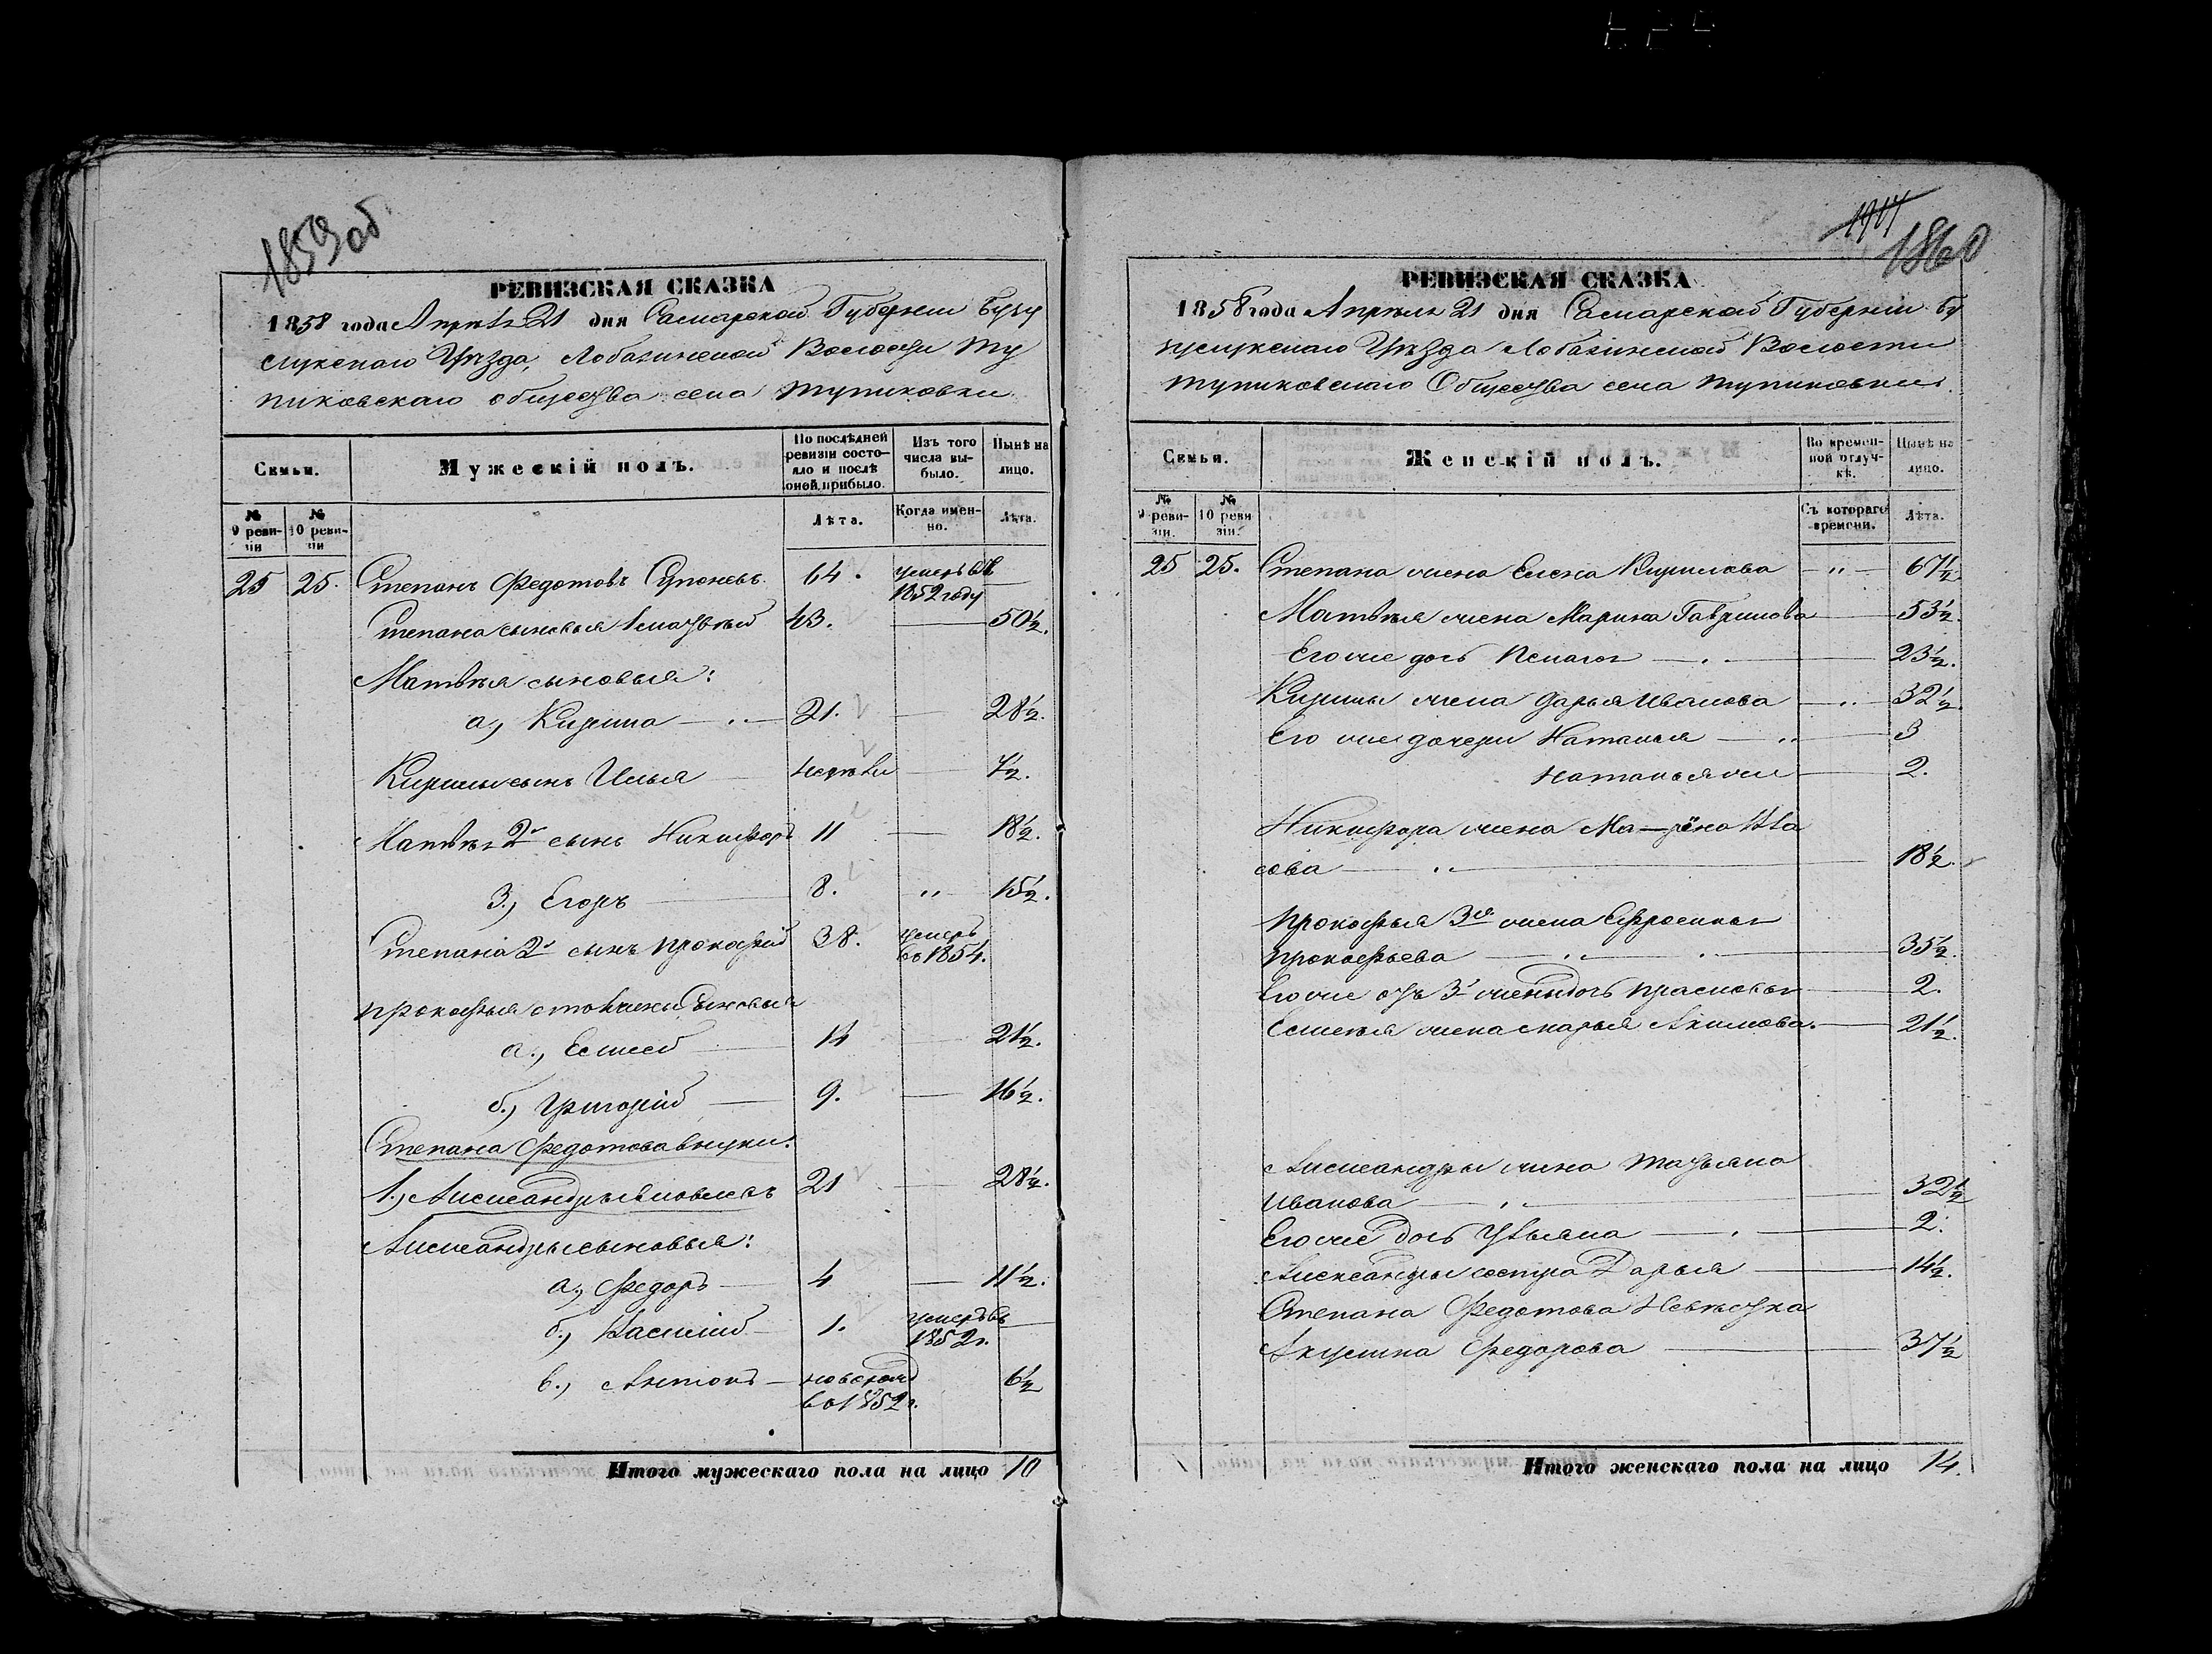 1859 об
РЕВИЗСКАЯ СКАЗКА
1858 года Апрѣля 21 дня Самарской Губерніи Бузу
лукскаго Уѣзда, Лобазинской Волости Ту
пиковскаго общества села Тупиковки
Семьи.
Мужескій полъ.
По послѣдней ревизіи состояло и послѣ оной прибыло.
Изъ того числа выбыло.
Нынѣ на лицо.
№ 9 ревизіи
№ 10 ревизіи
Лѣта.
Когда именно.
Лѣта.
25 25. Степанъ Федотовъ 64. умеръ въ 1852 году
Степана сыновья 1 Матвѣй 43. 50½.
Матвѣя сыновья:
а, Кирила 21. 28½.
Кирилы сынъ Илья 7½.
Матвѣя 2й сынъ Никифоръ 11 18½.
3, Егоръ 8. " 15½.
Степана 2й сынъ Прокофій 38. умеръ въ 1854.
Прокофья сыновья
а., Елисей 14 21½.
б., Григорій 9. 16½.
Степана Федотова внуки:
1., Александръ Яковлевъ 21 28½.
Александры сыновья:
а, Федоръ 4 11½.
б, Василій 1. умеръ въ 1852 г.
в., Антонъ новорожд въ 1852 г. 6½
Итого мужескаго пола на лицо 10
1917
1860
РЕВИЗСКАЯ СКАЗКА
1858 года Апрѣля 21 дня Самарской Губерніи Бу
зулукскаго Уѣзда Лобазинской Волости
Тупиковскаго Общества села Тупиковки
Семьи.
Женскій полъ.
Во временной отлучкѣ.
Нынѣ на лицо.
№ 9 ревизіи.
№ 10 ревизіи.
Съ котораго времени.
Лѣта.
25 25. Степана жена Елена Кирилова " 67½
Матвѣя жена Марина Гаврилова 53½.
Его же дочь Пелагея 23½.
Кирилы жена Дарья Иванова " 32½
Его же дочери Наталья " 3
Наталья же 2.
Никифора жена Ма-рёна Вла
сова " 18½.
Прокофья 3я жена Ефросинья
Прокофьева " 35½.
Его же отъ 3й жены дочь Прасковья 2.
Елисѣя жена Марья Акимова. 21½.
Александры жена Татьяна
Иванова " 32½
Его же дочь Ульяна 2.
Александры сестра Дарья 14½.
Степана Федотова Невѣстка
Акулина Федорова 37½
Итого женскаго пола на лицо 14.